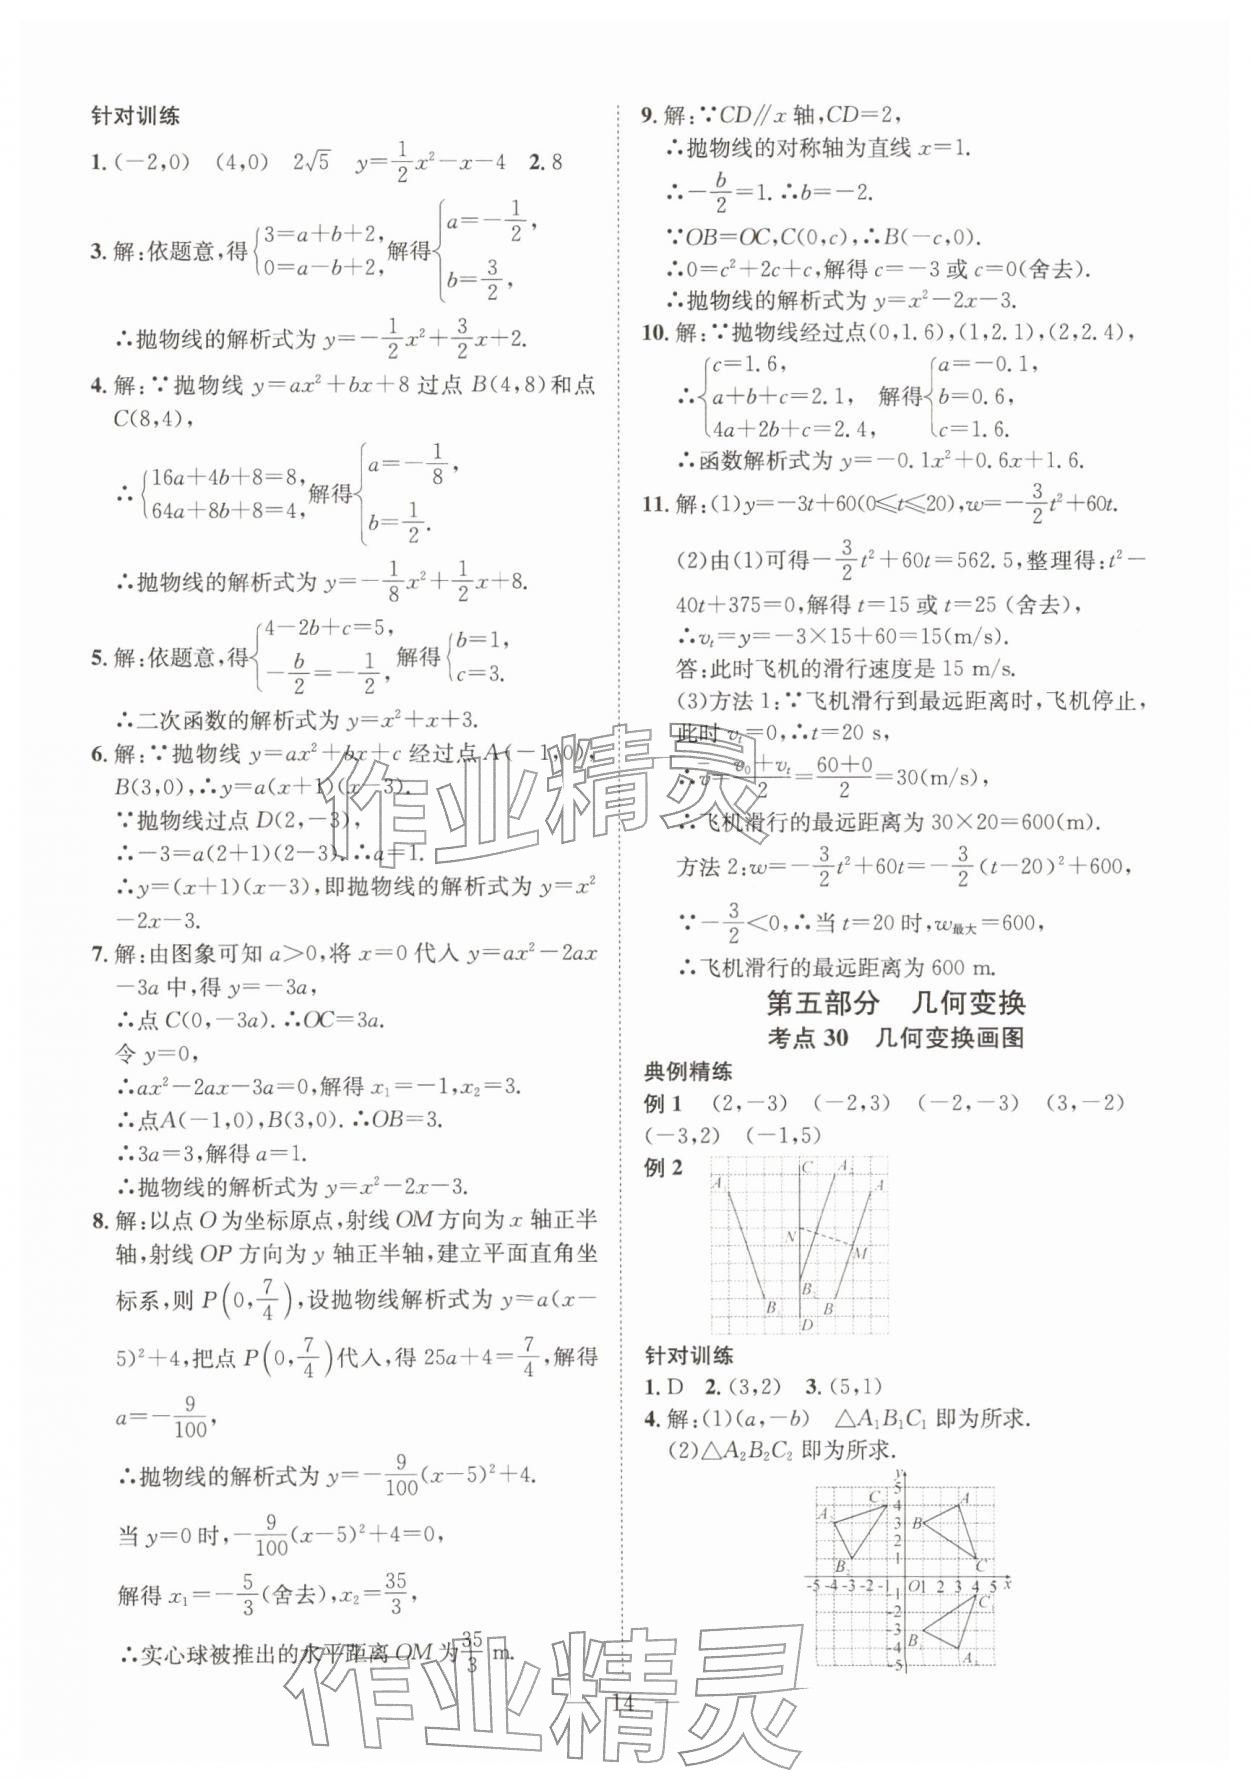 针对训练
1.(-2,0) (4,0) 2√5 y=1/2x²-x-4 2.8
3.解:依题意,得{3=a+b+2, 0=a-b+2, 解得{a=-1/2, b=3/2,
∴抛物线的解析式为 y=-1/2x²+3/2x+2.
4.解:∵抛物线 y=ax²+bx+8 过点 B(4,8)和点
C(8,4),
∴{16a+4b+8=8, 64a+8b+8=4, 解得{a=-1/8, b=1/2.
∴抛物线的解析式为 y=-1/8x²+1/2x+8.
5.解:依题意,得{4-2b+c=5, -b/2=-1/2, 解得{b=1, c=3.
∴二次函数的解析式为 y=x²+x+3.
6.解:∵抛物线 y=ax²+bx+c 经过点 A(-1,0),
B(3,0),∴y=a(x+1)(x-3).
∵抛物线过点 D(2,-3),
∴-3=a(2+1)(2-3).∴a=1.
∴y=(x+1)(x-3),即抛物线的解析式为 y=x²
-2x-3.
7.解:由图象可知 a>0,将 x=0 代入 y=ax²-2ax
-3a 中,得 y=-3a,
∴点 C(0,-3a).∴OC=3a.
令 y=0,
∴ax²-2ax-3a=0,解得 x₁=-1,x₂=3.
∴点A(-1,0),B(3,0).∴OB=3.
∴3a=3,解得 a=1.
∴抛物线的解析式为 y=x²-2x-3.
8.解:以点 O 为坐标原点,射线 OM 方向为 x 轴正半
轴,射线 OP 方向为 y 轴正半轴,建立平面直角坐
标系,则 P(0,7/4),设抛物线解析式为 y=a(x-
5)²+4,把点 P(0,7/4)代入,得 25a+4=7/4,解得
a=-9/100,
∴抛物线的解析式为 y=-9/100(x-5)²+4.
当 y=0 时,-9/100(x-5)²+4=0,
解得 x₁=-5/3(舍去),x₂=35/3,
∴实心球被推出的水平距离 OM 为35/3 m.
9.解:∵CD∥x 轴,CD=2,
∴抛物线的对称轴为直线 x=1.
∴-b/2=1.∴b=-2.
∵OB=OC,C(0,c),∴B(-c,0).
∴0=c²+2c+c,解得 c=-3 或 c=0(舍去).
∴抛物线的解析式为 y=x²-2x-3.
10.解:∵抛物线经过点(0,1.6),(1,2.1),(2,2.4),
∴{c=1.6, a+b+c=2.1, 4a+2b+c=2.4, 解得{a=-0.1, b=0.6, c=1.6.
∴函数解析式为 y=-0.1x²+0.6x+1.6.
11.解:(1)y=-3t+60(0≤t≤20),w=-3/2t²+60t.
(2)由(1)可得-3/2t²+60t=562.5,整理得:t²-
40t+375=0,解得 t=15 或 t=25 (舍去),
∴vₜ=y=-3×15+60=15(m/s).
答:此时飞机的滑行速度是 15 m/s.
(3)方法 1:∵飞机滑行到最远距离时,飞机停止,
此时 vₜ=0,∴t=20 s,
∴v̄=(v₀+vₜ)/2=(60+0)/2=30(m/s),
∴飞机滑行的最远距离为 30×20=600(m).
方法 2:w=-3/2t²+60t=-3/2(t-20)²+600,
∵-3/2<0,∴当 t=20 时,w最大=600,
∴飞机滑行的最远距离为 600 m.
第五部分 几何变换
考点 30 几何变换画图
典例精练
例 1 (2,-3) (-2,3) (-2,-3) (3,-2)
(-3,2) (-1,5)
例 2
C A₂
A₁ A
N
M
B₂
B₁ B
D
针对训练
1.D 2.(3,2) 3.(5,1)
4.解:(1)(a,-b) △A₁B₁C₁ 即为所求.
(2)△A₂B₂C₂ 即为所求.
y
5
4
3
2
1
-5 -4 -3 -2 -1 O 1 2 3 4 5 x
-1
-2
-3
-4
-5
A B C
A₂ B₂ C₂
A₁ B₁ C₁
14
作业精灵
作业精灵